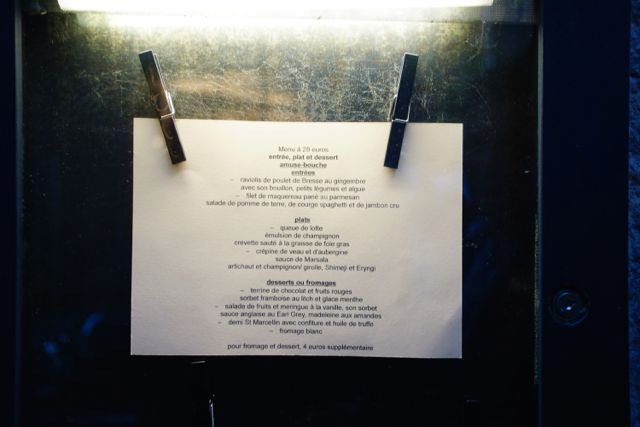 Menu à 28 euros
entrée, plat et dessert
amuse-bouche
entrées
– raviolis de poulet de Bresse au gingembre
avec son bouillon, petits légumes et algue
– filet de maquereau pané au parmesan
salade de pomme de terre, de courge spaghetti et de jambon cru
plats
– queue de lotte
émulsion de champignon
crevette sauté à la graisse de foie gras
– crépine de veau et d'aubergine
sauce de Marsala
artichaut et champignon/ girolle, Shimeji et Eryngi
desserts ou fromages
– terrine de chocolat et fruits rouges
sorbet framboise au litchi et glace menthe
– salade de fruits et meringue à la vanille, son sorbet
sauce anglaise au Earl Grey, madeleine aux amandes
– demi St Marcellin avec confiture et huile de truffe
– fromage blanc
pour fromage et dessert, 4 euros supplémentaire